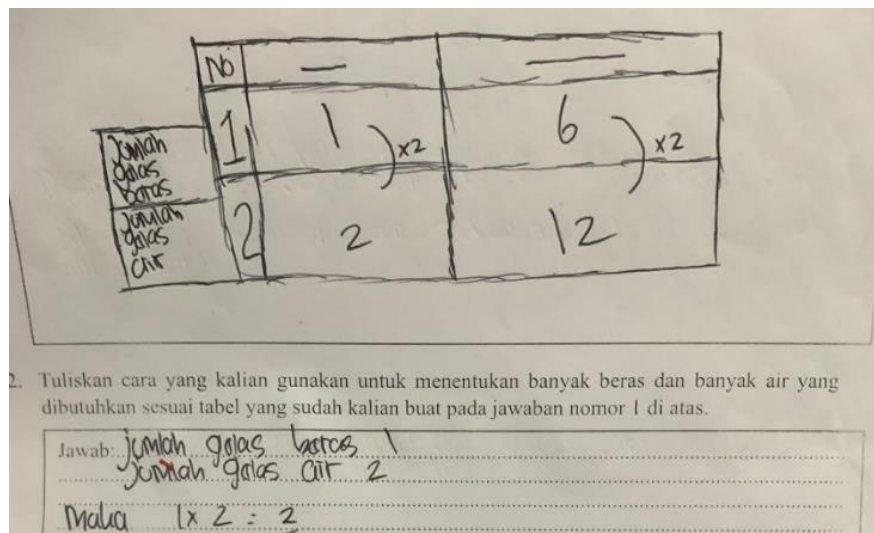 No — —
Jumlah gelas beras 1 1 6
)×2 )×2
Jumlah gelas air 2 2 12
2. Tuliskan cara yang kalian gunakan untuk menentukan banyak beras dan banyak air yang
dibutuhkan sesuai tabel yang sudah kalian buat pada jawaban nomor 1 di atas.
Jawab: jumlah gelas beras 1
Jumlah gelas air 2
Maka 1 x 2 = 2